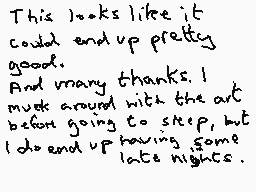 This looks like it
could end up pretty
good.
And many thanks. I
muck around with the art
before going to sleep, but
I do end up having some
late nights.